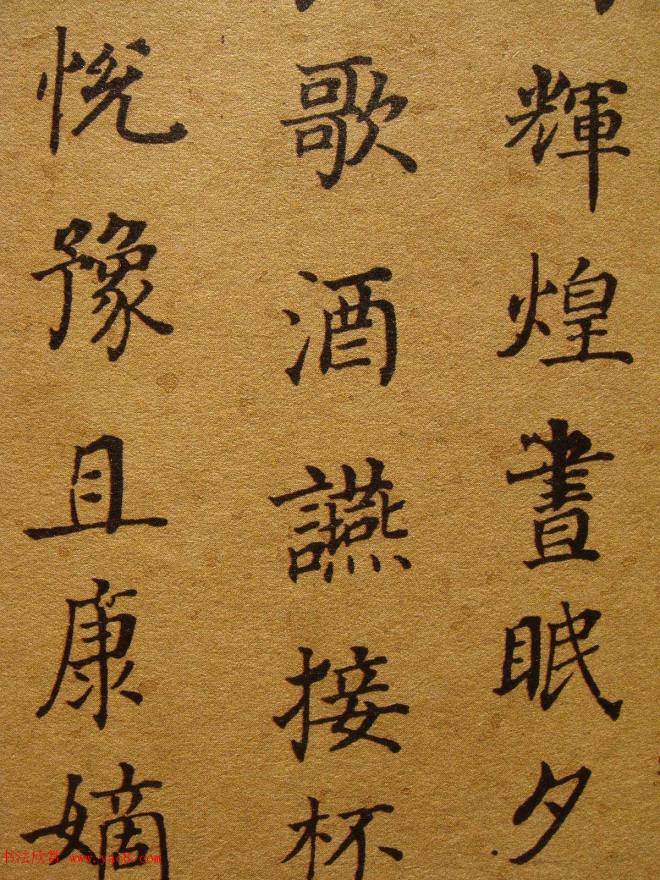 輝煌晝眠夕
歌酒讌接杯
悅豫且康嫡
书法欣赏 www.yac8.com